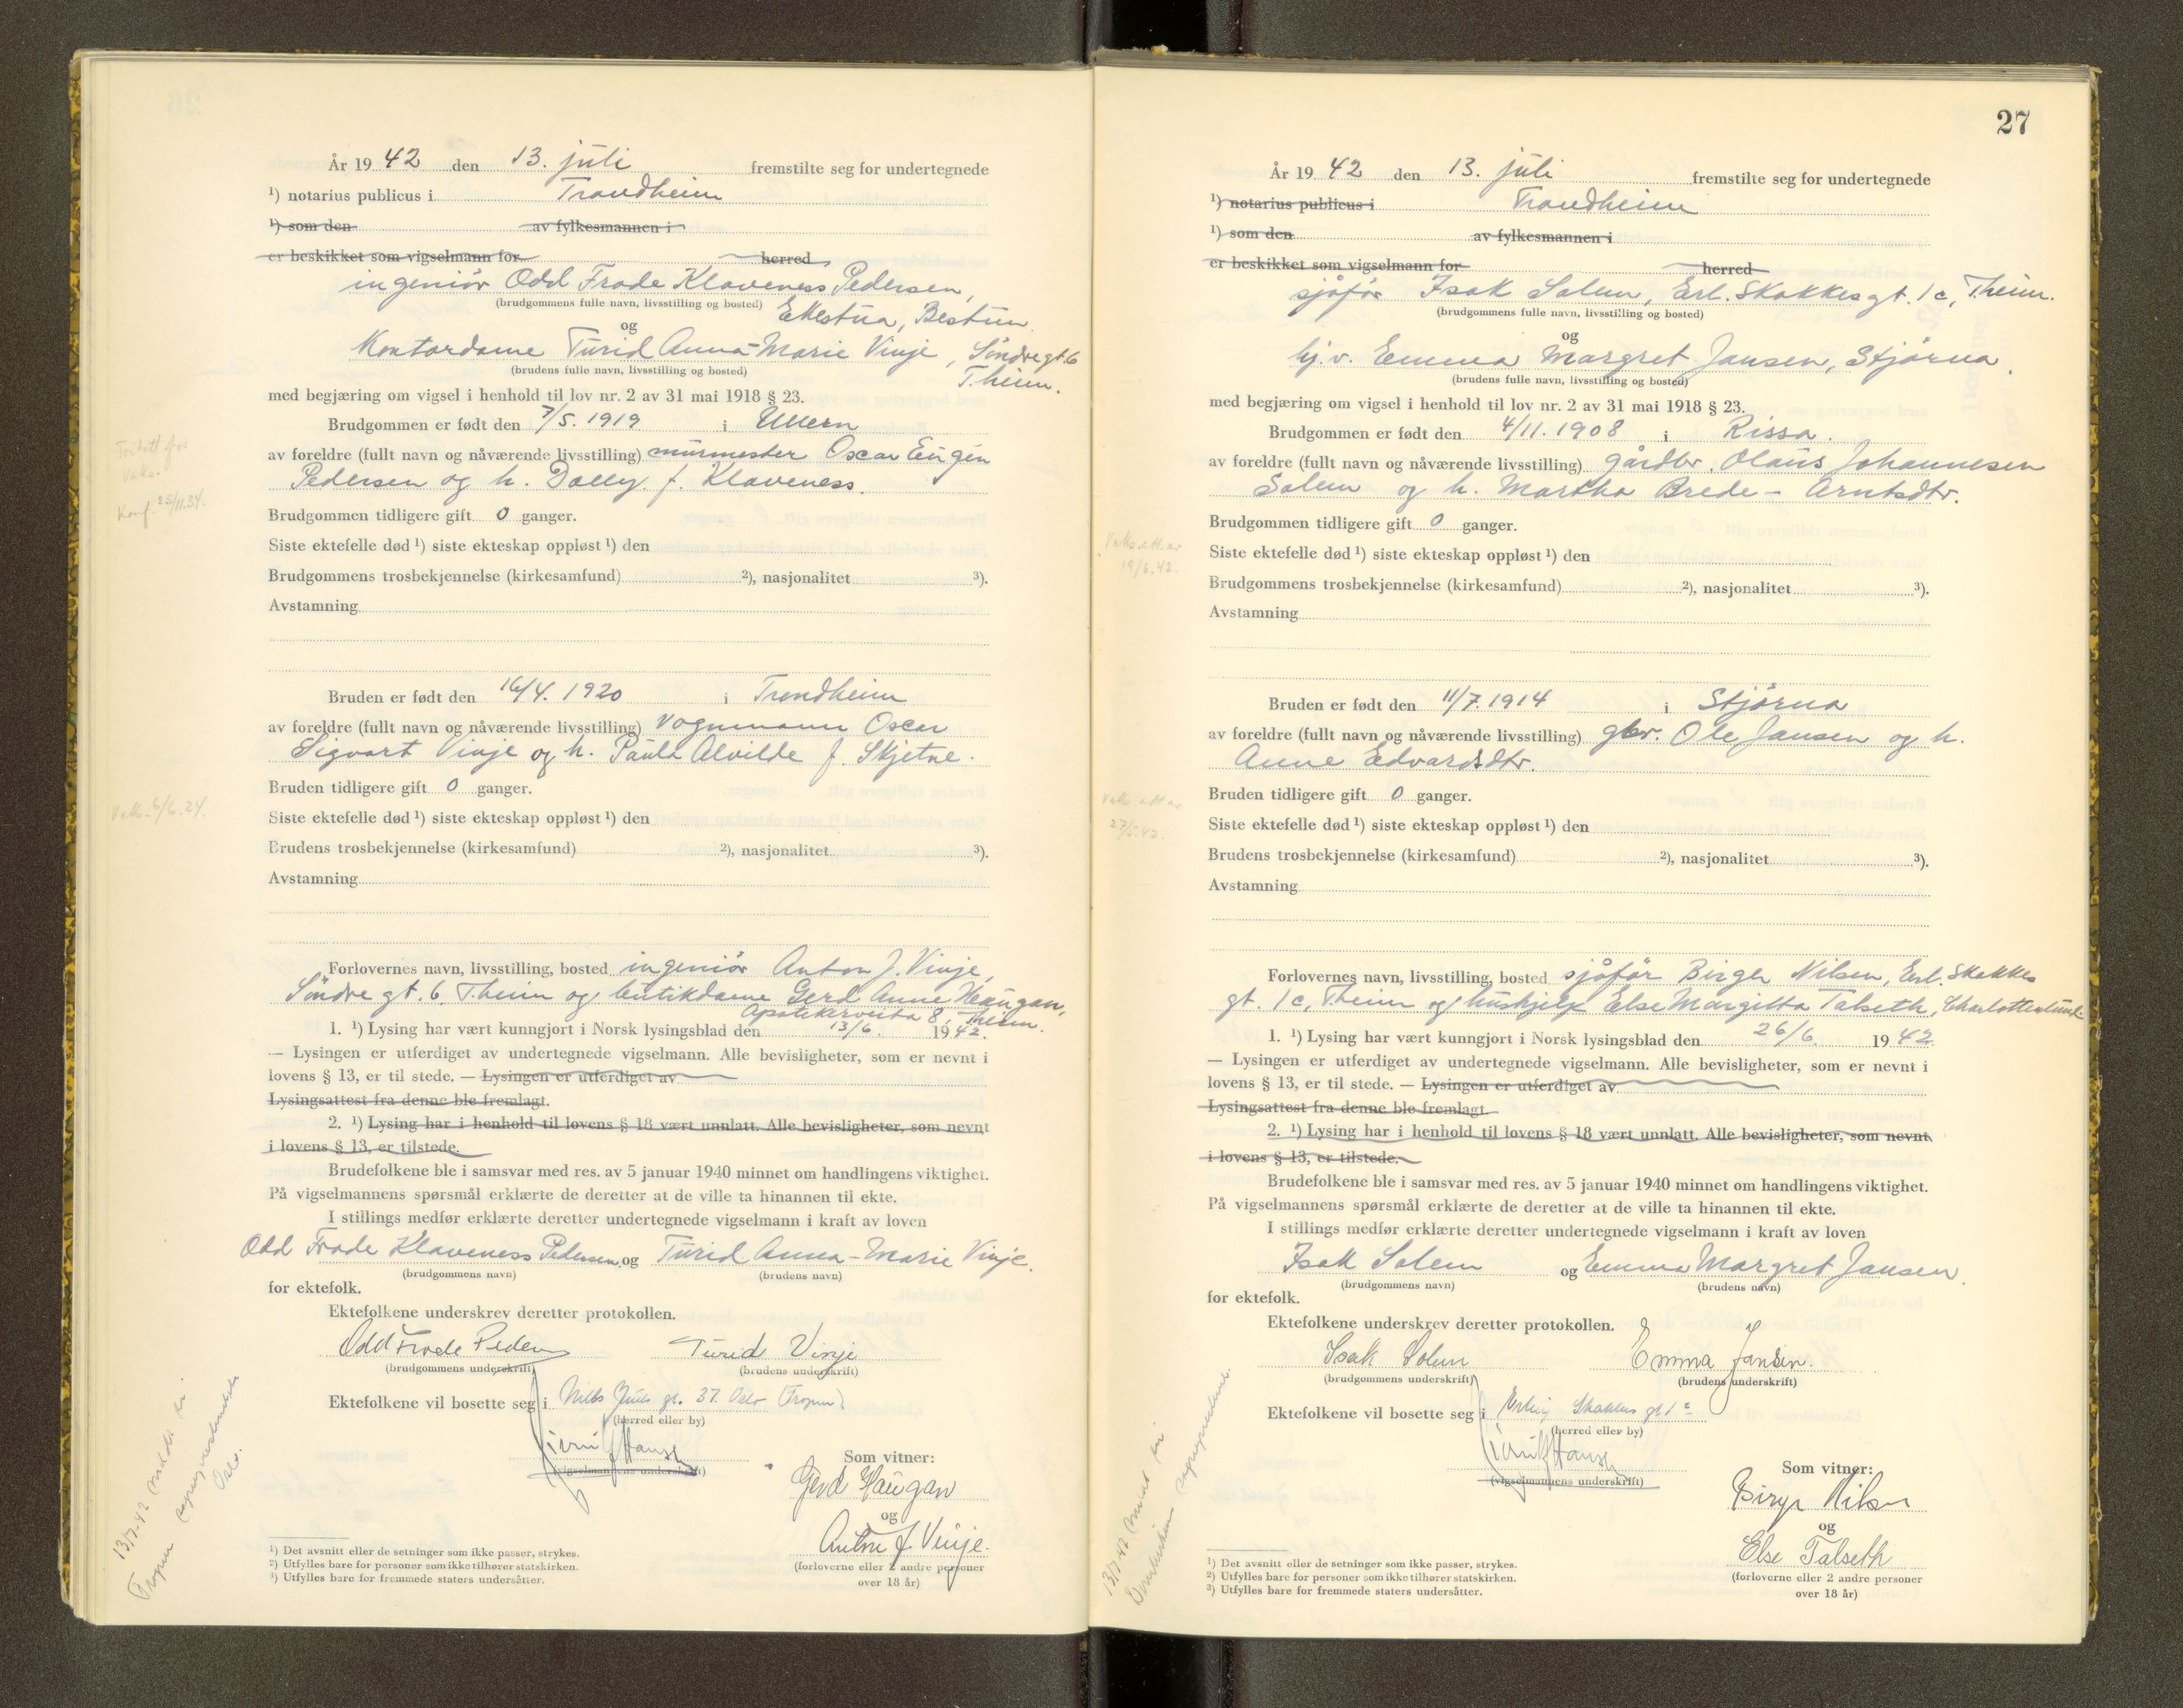 År 1942 den 13. juli fremstilte seg for undertegnede
¹) notarius publicus i Trondheim
¹) som den av fylkesmannen i
er beskikket som vigselmann for herred
ingeniör Odd Frode Klaveness Pedersen,
(brudgommens fulle navn, livsstilling og bosted) Ekestua, Bestun
og
Kontordame Turid Anna-Marie Vinje, Söndregt. 6
(brudens fulle navn, livsstilling og bosted) T.heim.
med begjæring om vigsel i henhold til lov nr. 2 av 31 mai 1918 § 23.
Brudgommen er født den 7/5. 1919 i Ullern
av foreldre (fullt navn og nåværende livsstilling) murmester Oscar Eugen
Pedersen og h. Dolly f. Klaveness.
Konf. 25/11.34.
Brudgommen tidligere gift 0 ganger.
Siste ektefelle død ¹) siste ekteskap oppløst ¹) den
Brudgommens trosbekjennelse (kirkesamfund) ²), nasjonalitet ³).
Avstamning
Bruden er født den 16/4. 1920 i Trondheim
av foreldre (fullt navn og nåværende livsstilling) vognmann Oscar
Sigvart Vinje og h. Paula Alvilde f. Skjetne.
Bruden tidligere gift 0 ganger.
Vaks. 6/6.24.
Siste ektefelle død ¹) siste ekteskap oppløst ¹) den
Brudens trosbekjennelse (kirkesamfund) ²), nasjonalitet ³).
Avstamning
Forlovernes navn, livsstilling, bosted ingeniör Anton J. Vinje,
Söndre gt. 6, T.heim og butikdame Gerd Anne Haugan,
Apotekerveita 8, T.heim.
1. ¹) Lysing har vært kunngjort i Norsk lysingsblad den 13/6. 1942.
— Lysingen er utferdiget av undertegnede vigselmann. Alle bevisligheter, som er nevnt i
lovens § 13, er til stede. — Lysingen er utferdiget av
Lysingsattest fra denne ble fremlagt.
2. ¹) Lysing har i henhold til lovens § 18 vært unnlatt. Alle bevisligheter, som nevnt
i lovens § 13, er tilstede.
Brudefolkene ble i samsvar med res. av 5 januar 1940 minnet om handlingens viktighet.
På vigselmannens spørsmål erklærte de deretter at de ville ta hinannen til ekte.
I stillings medfør erklærte deretter undertegnede vigselmann i kraft av loven
Odd Frode Klaveness Pedersen og Turid Anna-Marie Vinje.
(brudgommens navn) (brudens navn)
for ektefolk.
Ektefolkene underskrev deretter protokollen.
Odd Frode Pedersen Turid Vinje
(brudgommens underskrift) (brudens underskrift)
Ektefolkene vil bosette seg i Nills Juels gt. 37. Oslo (Frogner)
(herred eller by)
(vigselmannens underskrift)
Som vitner:
Gerd Haugan
og
Anton J. Vinje.
(forloverne eller 2 andre personer
over 18 år)
13/7-42 meldt til
Frogner
Oslo.
¹) Det avsnitt eller de setninger som ikke passer, strykes.
²) Utfylles bare for personer som ikke tilhører statskirken.
³) Utfylles bare for fremmede staters undersåtter.
27
År 1942 den 13. juli fremstilte seg for undertegnede
¹) notarius publicus i Trondheim
¹) som den av fylkesmannen i
er beskikket som vigselmann for herred
sjåför Isak Solem, Erl. Skakkesgt. 1c, T.heim.
(brudgommens fulle navn, livsstilling og bosted)
og
hj.v. Emma Margret Jansen, Stjörna.
(brudens fulle navn, livsstilling og bosted)
med begjæring om vigsel i henhold til lov nr. 2 av 31 mai 1918 § 23.
Brudgommen er født den 4/11. 1908 i Rissa.
av foreldre (fullt navn og nåværende livsstilling) gårdbr. Olaus Johannesen
Solem og h. Martha Brede-Arntsdtr.
Brudgommen tidligere gift 0 ganger.
Siste ektefelle død ¹) siste ekteskap oppløst ¹) den
Brudgommens trosbekjennelse (kirkesamfund) ²), nasjonalitet ³).
Avstamning
Bruden er født den 11/7. 1914 i Stjörna
av foreldre (fullt navn og nåværende livsstilling) gbr. Ole Jansen og h.
Anne Edvardsdtr.
Bruden tidligere gift 0 ganger.
Siste ektefelle død ¹) siste ekteskap oppløst ¹) den
Brudens trosbekjennelse (kirkesamfund) ²), nasjonalitet ³).
Avstamning
Forlovernes navn, livsstilling, bosted sjåför Birger Nilsen, Erl. Skakkes
gt. 1c, T.heim og hushjelp Else Margitta Talseth, Charlottenlund
1. ¹) Lysing har vært kunngjort i Norsk lysingsblad den 26/6. 1942.
— Lysingen er utferdiget av undertegnede vigselmann. Alle bevisligheter, som er nevnt i
lovens § 13, er til stede. — Lysingen er utferdiget av
Lysingsattest fra denne ble fremlagt
2. ¹) Lysing har i henhold til lovens § 18 vært unnlatt. Alle bevisligheter, som nevnt,
i lovens § 13, er tilstede.
Brudefolkene ble i samsvar med res. av 5 januar 1940 minnet om handlingens viktighet.
På vigselmannens spørsmål erklærte de deretter at de ville ta hinannen til ekte.
I stillings medfør erklærte deretter undertegnede vigselmann i kraft av loven
Isak Solem og Emma Margret Jansen.
(brudgommens navn) (brudens navn)
for ektefolk.
Ektefolkene underskrev deretter protokollen.
Isak Solem Emma Jansen.
(brudgommens underskrift) (brudens underskrift)
Ektefolkene vil bosette seg i Erling Skakkes gt 1c
(herred eller by)
(vigselmannens underskrift)
Som vitner:
Birger Nilsen
og
Else Talseth
(forloverne eller 2 andre personer
over 18 år)
13/7-42 meldt til
¹) Det avsnitt eller de setninger som ikke passer, strykes.
²) Utfylles bare for personer som ikke tilhører statskirken.
³) Utfylles bare for fremmede staters undersåtter.